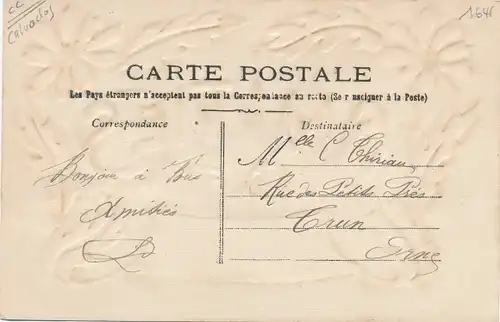 CC
Calvados
CARTE POSTALE
Les Pays étrangers n'acceptent pas tous la Correspondance au recto (Se renseigner à la Poste)
Correspondance
Destinataire
Bonjour à Tous
Amitiés
Melle C Thiriau
Rue des Petits Prés
Trun
Orne